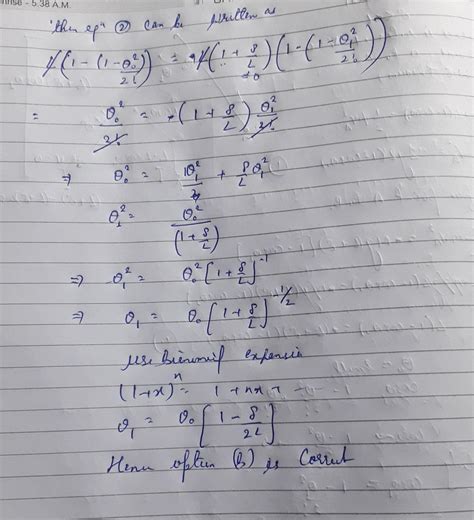 nrise - 5.38 A.M.
then eqn (2) can be written as
l(1-(1-θ₀²/2!)) = gl(1+δ/L)(1-(1-θ₁²/2!))
= θ₀²/2! = (1+δ/L) θ₁²/2!
⇒ θ₀² = 1θ₁² + δ/L θ₁²
θ₁² = θ₀²/(1+δ/L)
⇒ θ₁² = θ₀² [1+δ/L]⁻¹
⇒ θ₁ = θ₀ [1+δ/L]^-1/2
use Binomial expansion
(1+x)ⁿ = 1 + nx + - - -
θ₁ = θ₀ [1 - δ/2L]
Hence option (B) is correct